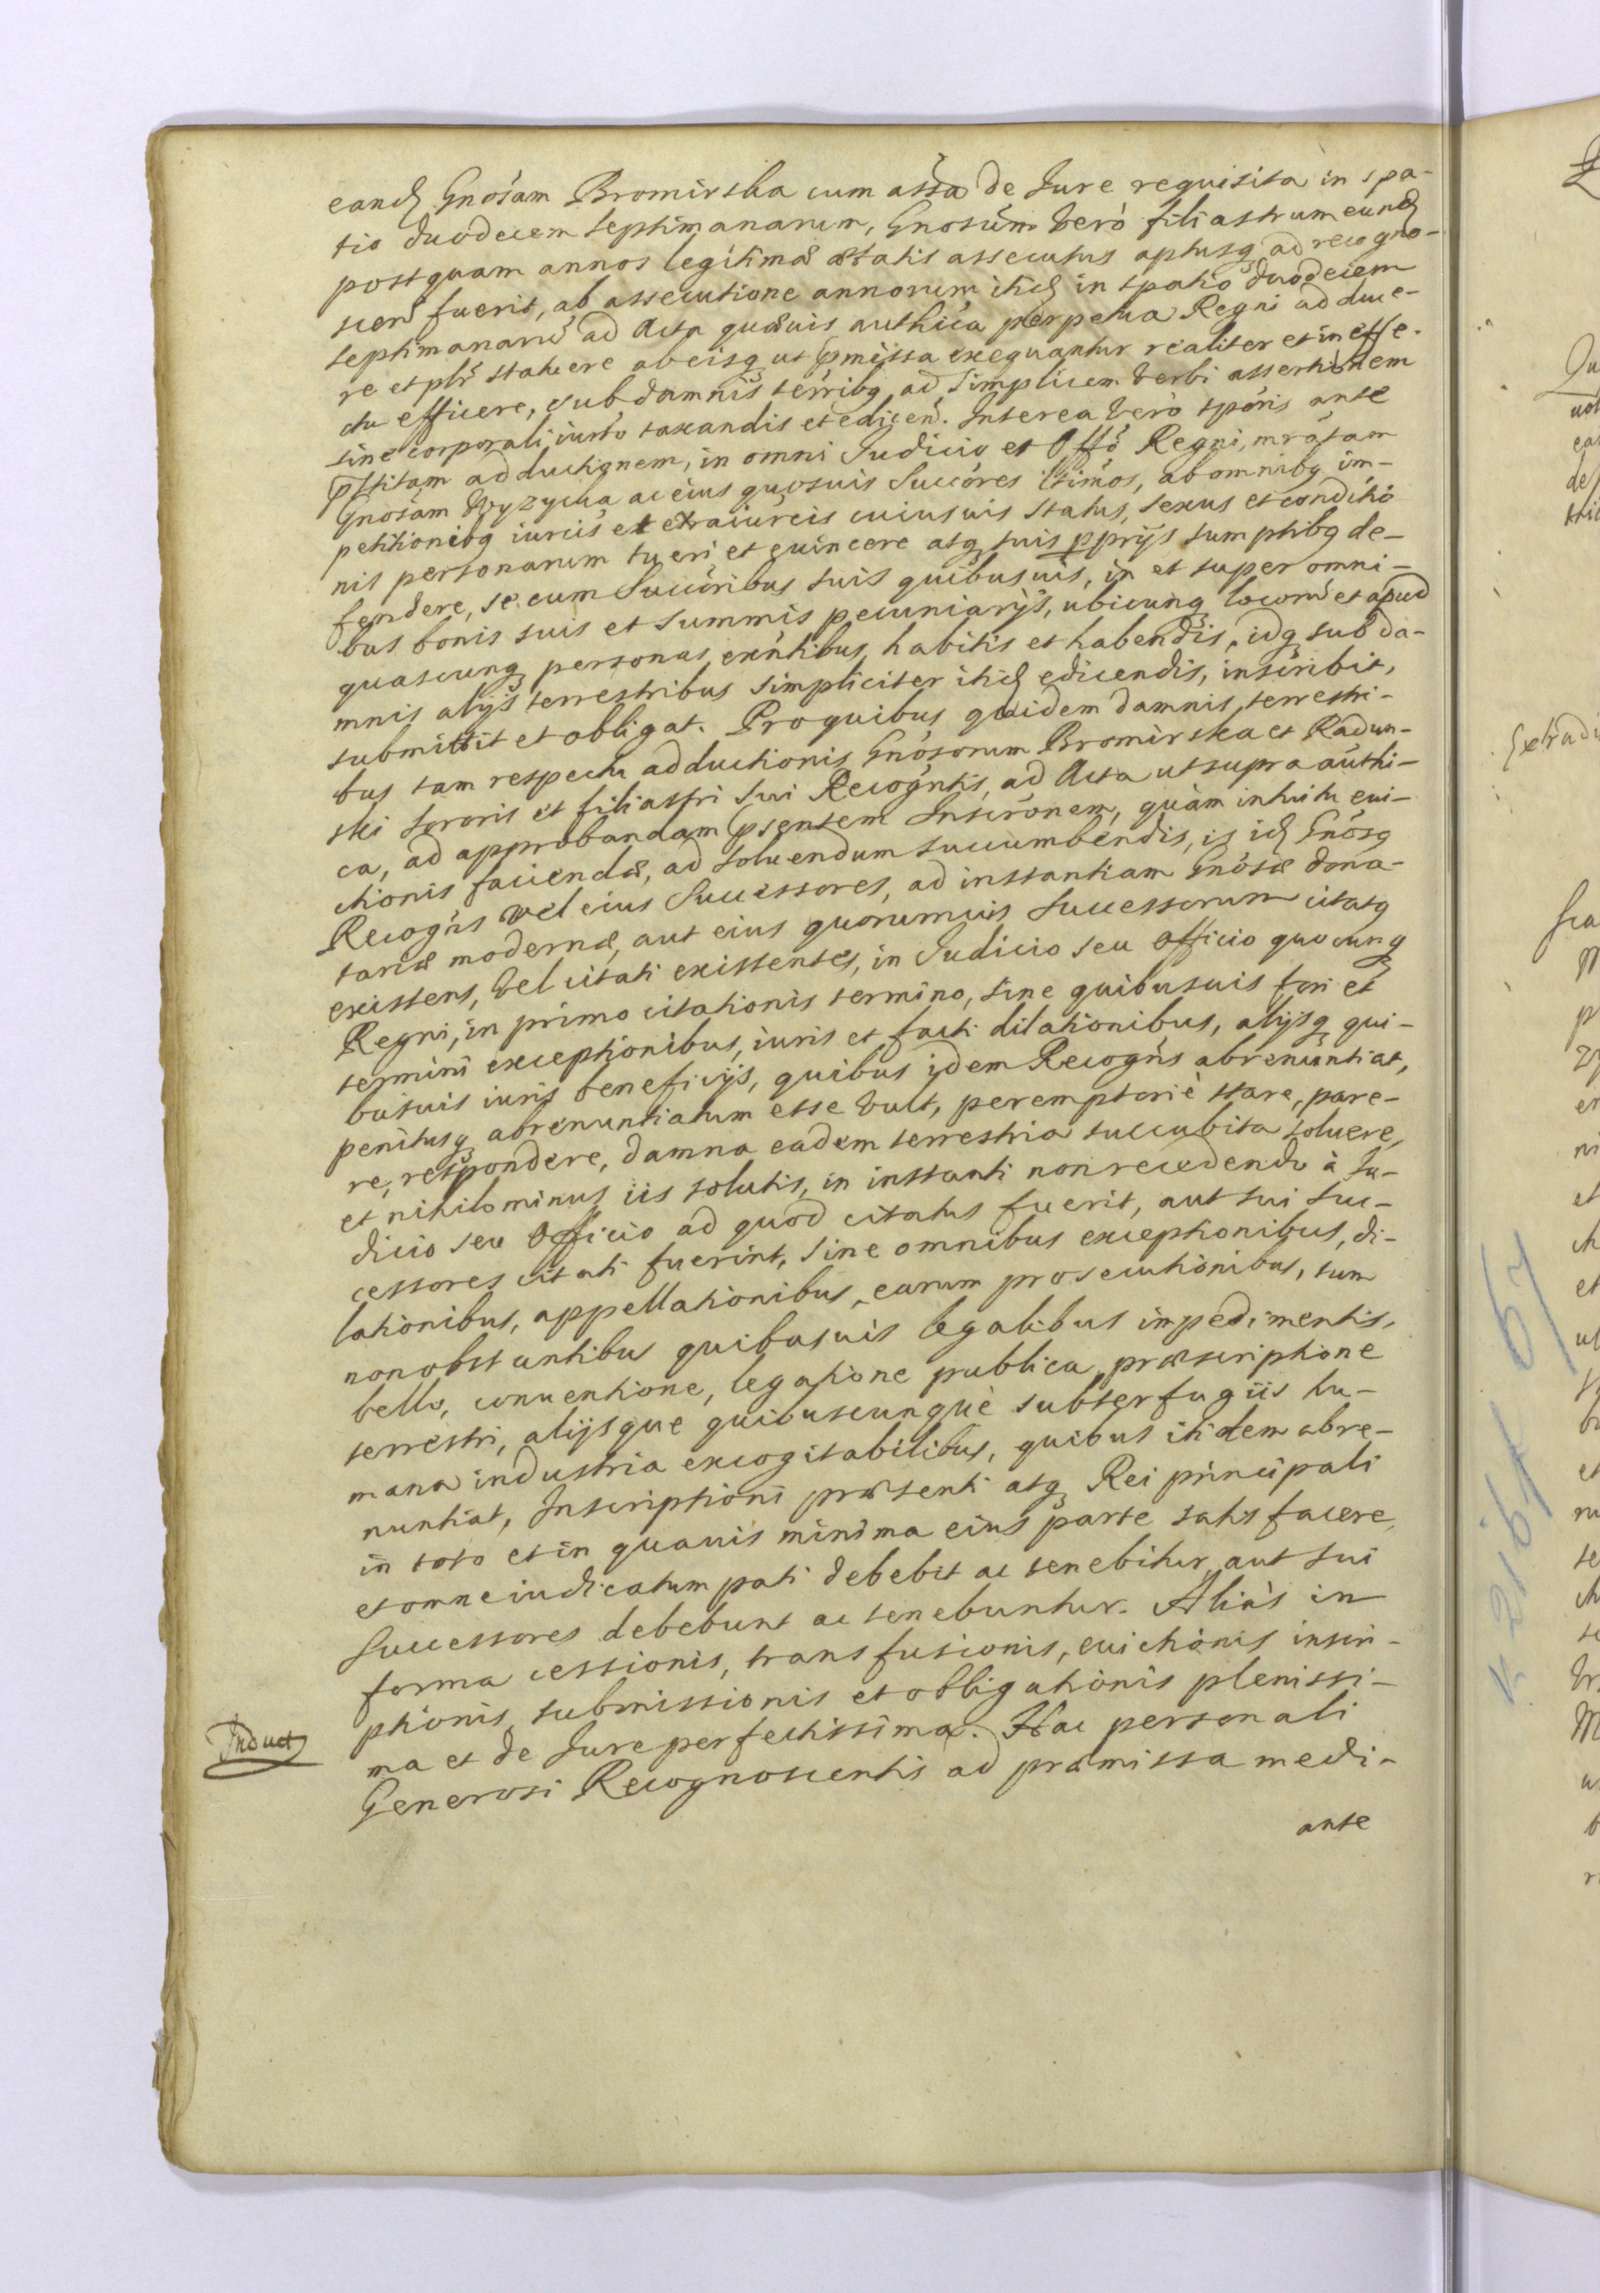 eand Gnosam Bromirska cum assa de Jure requisita in spa-
tio duodecem septimanarum, Gnosum verò filiastrum eund
postquam annos legitimæ ætatis assecutus aptusq ad recogno-
scend fuerit, ab assecutione annorum itid in spatio duodecem
septimanarū ad Acta quævis authica perpetua Regni adduce-
re et plr statuere ab eisq ut pmissa exequantur realiter et in effe-
ctu efficere, sub damnis terribq ad simplicem verbi assertionem
sine corporali iurto taxandis et edicend. Interea verò tporis ante
pstitam adductionem, in omni Judicio et Offo Regni, mratam
Gnosam Wyzycka ac eius quosuis Succores ltimos, ab omnibq im-
petitionibq iurcis et extraiurcis cuiusuis status, sexus et conditio
nis personarum tueri et euincere atq suis pprijs sumptibq de-
fendere, se cum Succoribus suis quibusuis, in et super omni-
bus bonis suis et summis pecuniarijs, ubicunq locorū et apud
quascunq personas exntibus, habitis et habendis, idq sub da-
mnis alijs terrestribus simpliciter itid edicendis, inscribit,
submittit et obligat. Pro quibus quidem damnis terrestri-
bus tam respectu adductionis Gnosorum Bromirska et Radun-
ski sororis et filiastri sui Recogntis, ad Acta ut supra authi-
ca, ad approbandam psentem Inscronem, quàm intuitu eui-
ctionis faciendæ, ad soluendum succumbendis, is id Gnosq
Recogns vel eius Successores, ad instantiam Gnosæ dona-
tariæ modernæ, aut eius quorumuis Successorum citatq
existens, vel citati existentes, in Judicio seu Officio quocunq
Regni, in primo citationis termino, sine quibusuis fori et
termini exceptionibus, iuris et facti dilationibus, alijsq qui-
busuis iuris beneficijs, quibus idem Recogns abrenuntiat,
penitusq abrenuntiatum esse vult, peremptoriè stare, pare-
re, respondere, damna eadem terrestria succubita soluere,
et nihilominus iis solutis, in instanti non recedendo à Ju-
dicio seu Officio ad quod citatus fuerit, aut sui suc-
cessores citati fuerint, sine omnibus exceptionibus, di-
lationibus, appellationibus, earum prosecutionibus, tum
non obstantibus quibusuis legalibus impedimentis,
bello, conuentione, legatione publica, præscriptione
terrestri, alijsque quibuscunquè subterfugiis hu-
mana industria excogitabilibus, quibus itidem abre-
nuntiat, Inscriptioni præsenti atq Rei principali
in toto et in quauis minima eius parte satisfacere,
et omne iudicatum pati debebit ac tenebitur, aut sui
Successores debebunt ac tenebuntur. Aliàs in
forma cessionis, transfusionis, euictionis inscri-
ptionis, submissionis et obligationis plenissi-
ma et de Jure perfectissima. Hac personali
Induct
Generosi Recognoscentis ad præmissa medi-
ante